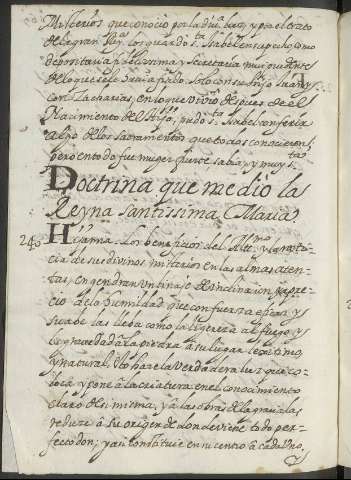 Misterios que conocio por la diu.ª luz, y por el trato
de la gran Rey.ª los guardó S.ta Isabel en su pecho, como
depositaria fidelissima, y Secretaria mui prudente
de lo que se le auia fiado. Solo con su hijo Juan, y
con Zacharias, en lo que viuió despues de el
Nacimiento del Hijo, pudo S.ta Isabel conferir
algo de los Sacramentos que todos conocieron;
pero en todo fue muger fuerte sabia, y muy S.ta
Doctrina que me dio la
Reyna Santissima Maria
240 Hija mia. Los beneficios del Altmo. y la noti-
cia de sus divinos misterios en las almas aten-
tas, engendran un linaje de inclinacion, y apre-
cio a la humildad que con fuerza eficaz y
suabe las lleba como la ligereza al fuego, y
la gravedad a la piedra à su lugar legitimo,
y natural. Esto haze la verdadera luz que co-
loca y pone à la criatura en el conocimiento
claro de si misma, y à las obras de la gracia las
reduze à su origen de donde viene todo per-
fecto don; y assi constituie en su centro à cada uno.